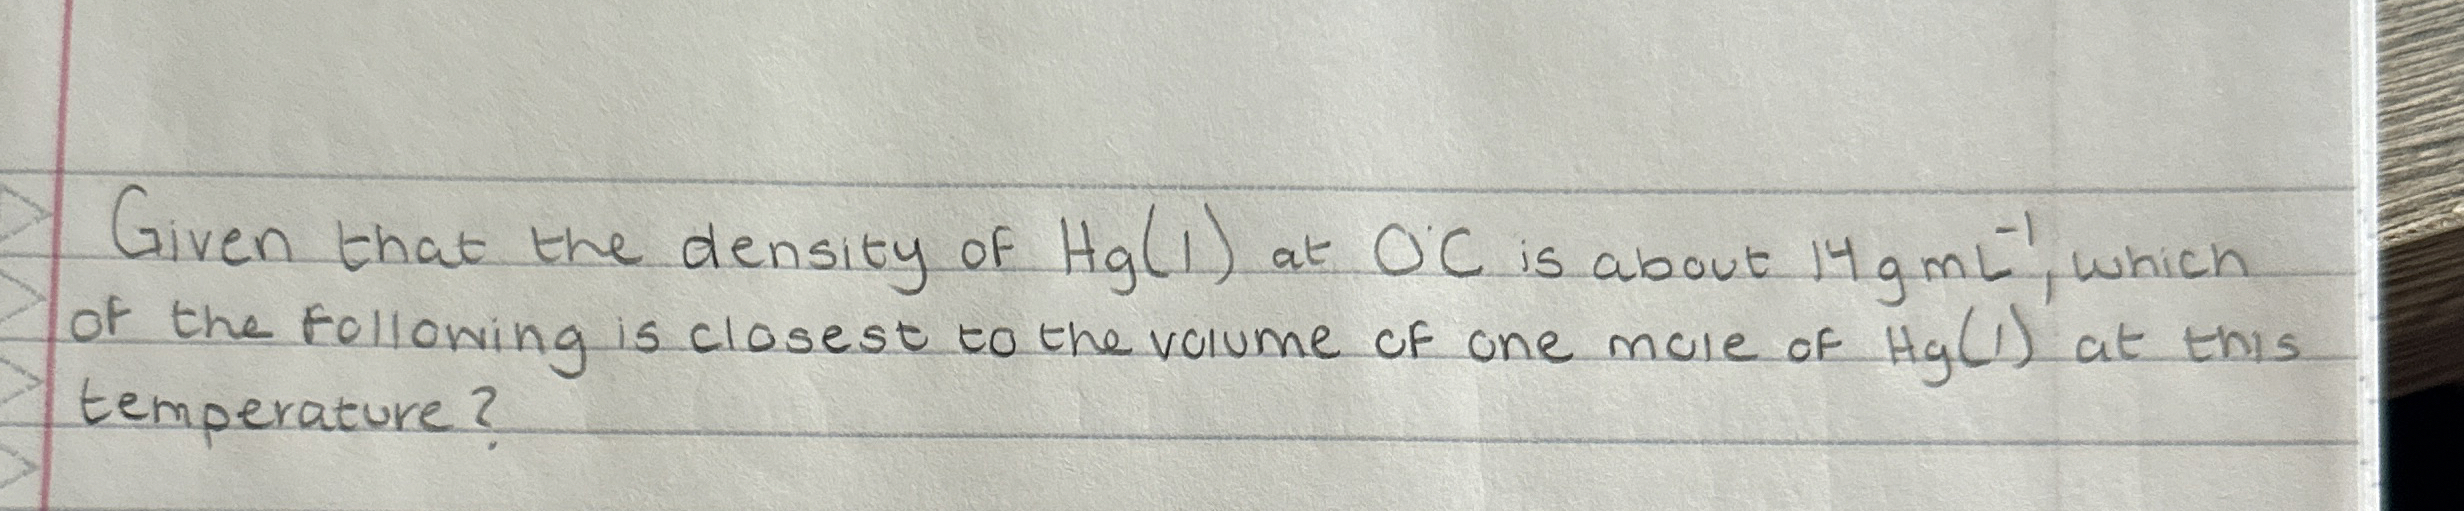 Given that the density of Hg(l) at 0°C is about 14 g mL⁻¹, which
of the following is closest to the volume of one mole of Hg(l) at this
temperature?